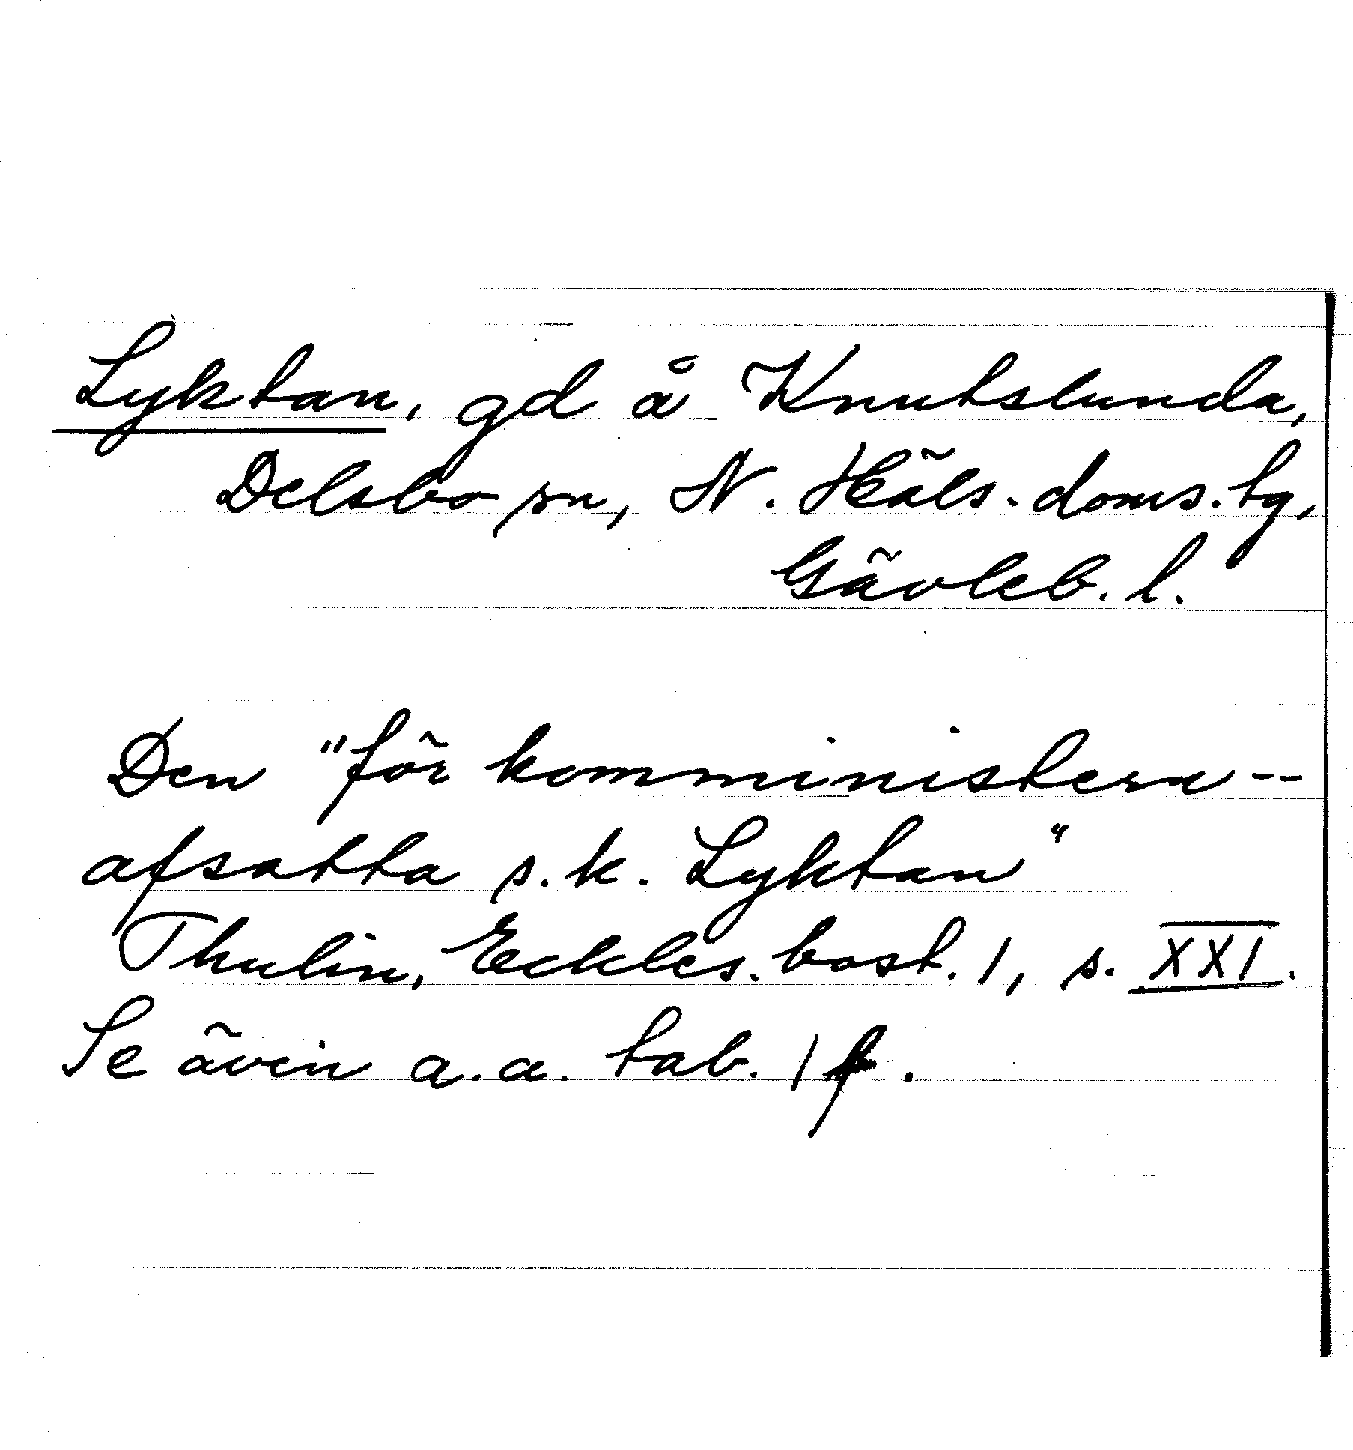 Lyktan, gd å Knutslunda,
Delsbo sn, N. Häls. doms. tg,
Gävleb. l.
Den "för komministern --
afsatta s. k. Lyktan"
Thulin, Eckles. bost. 1, s. XXI.
Se även a. a. tab. 1